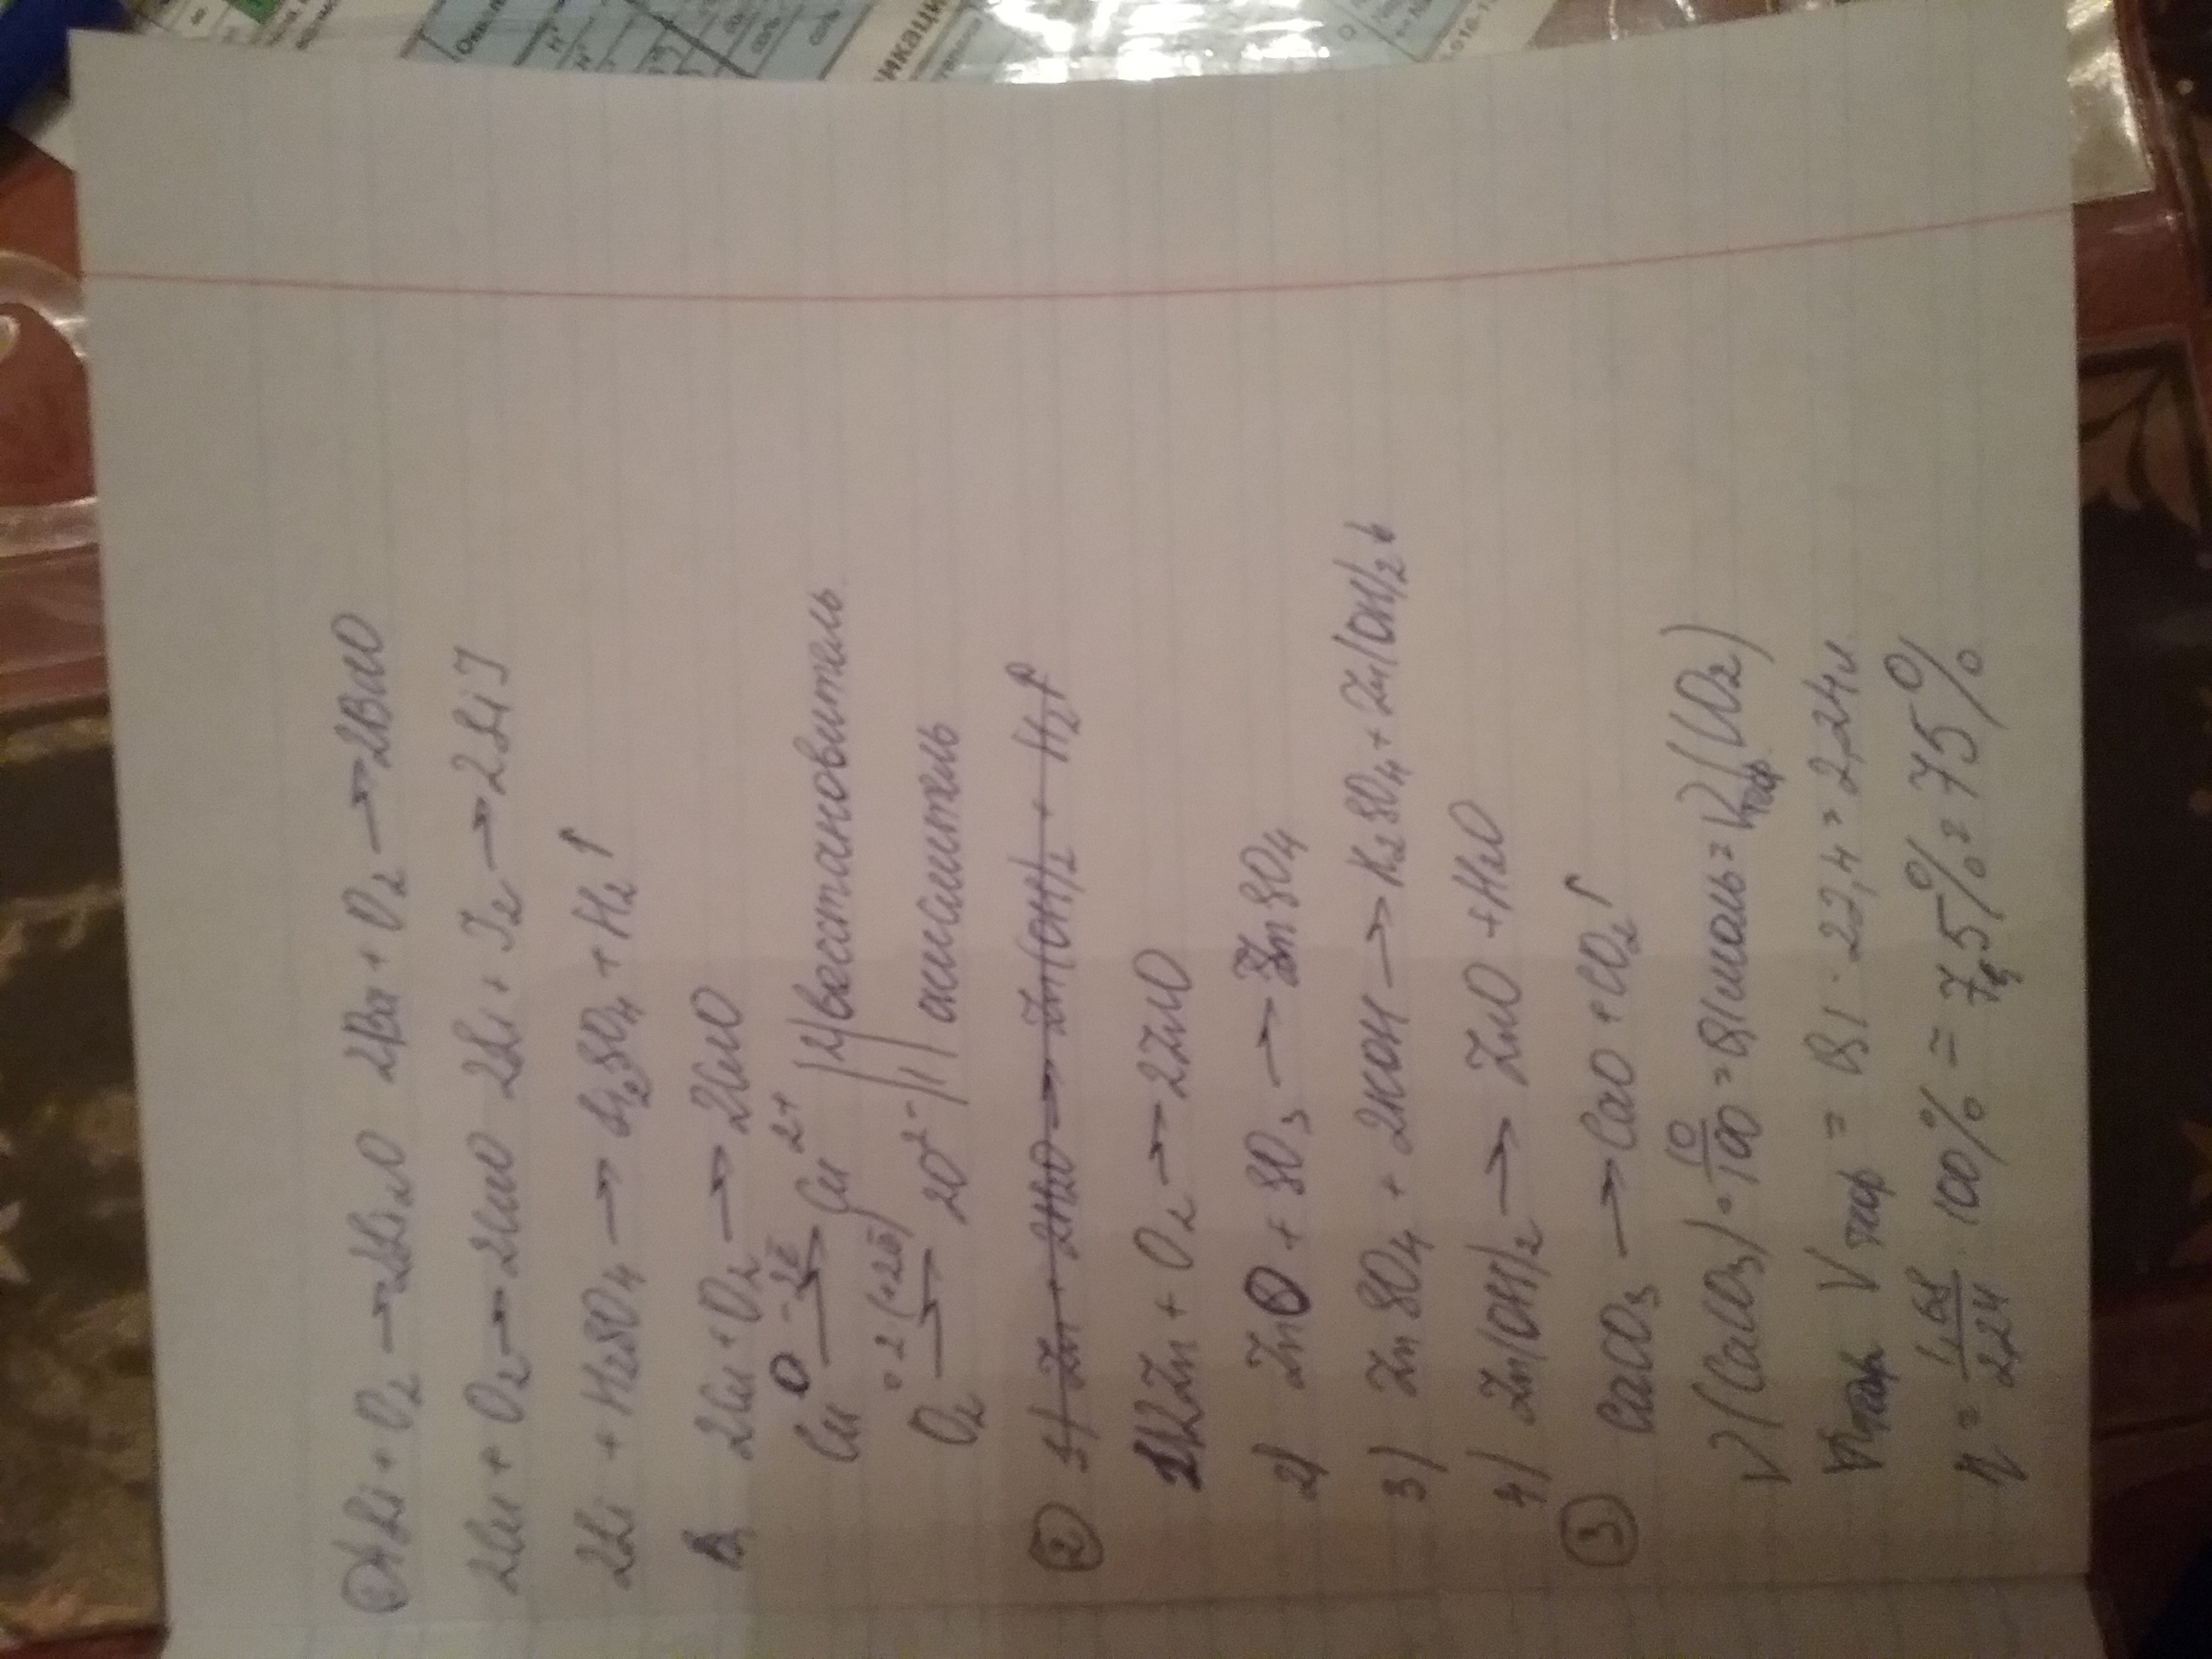 ① 4Li + O2 → 2Li2O 2Ba + O2 → 2BaO
2Cu + O2 → 2CuO 2Li + I2 → 2LiI
2Li + H2SO4 → Li2SO4 + H2↑
2Cu + O2 → 2CuO
Cu⁰ -2ē → Cu²⁺ |2| восстановитель
O2 +2(+2ē) → 2O²⁻ |1| окислитель
② 1) Zn + 2H2O → Zn(OH)2 + H2↑
1) 2Zn + O2 → 2ZnO
2) ZnO + SO3 → ZnSO4
3) ZnSO4 + 2KOH → K2SO4 + Zn(OH)2↓
4) Zn(OH)2 → ZnO + H2O
③ CaCO3 → CaO + CO2↑
ν(CaCO3) = 10/100 = 0,1 моль = ν(CO2)
Vтеор = 0,1 · 22,4 = 2,24л
η = 1,68/2,24 · 100% = 7,5% = 75%
икаци